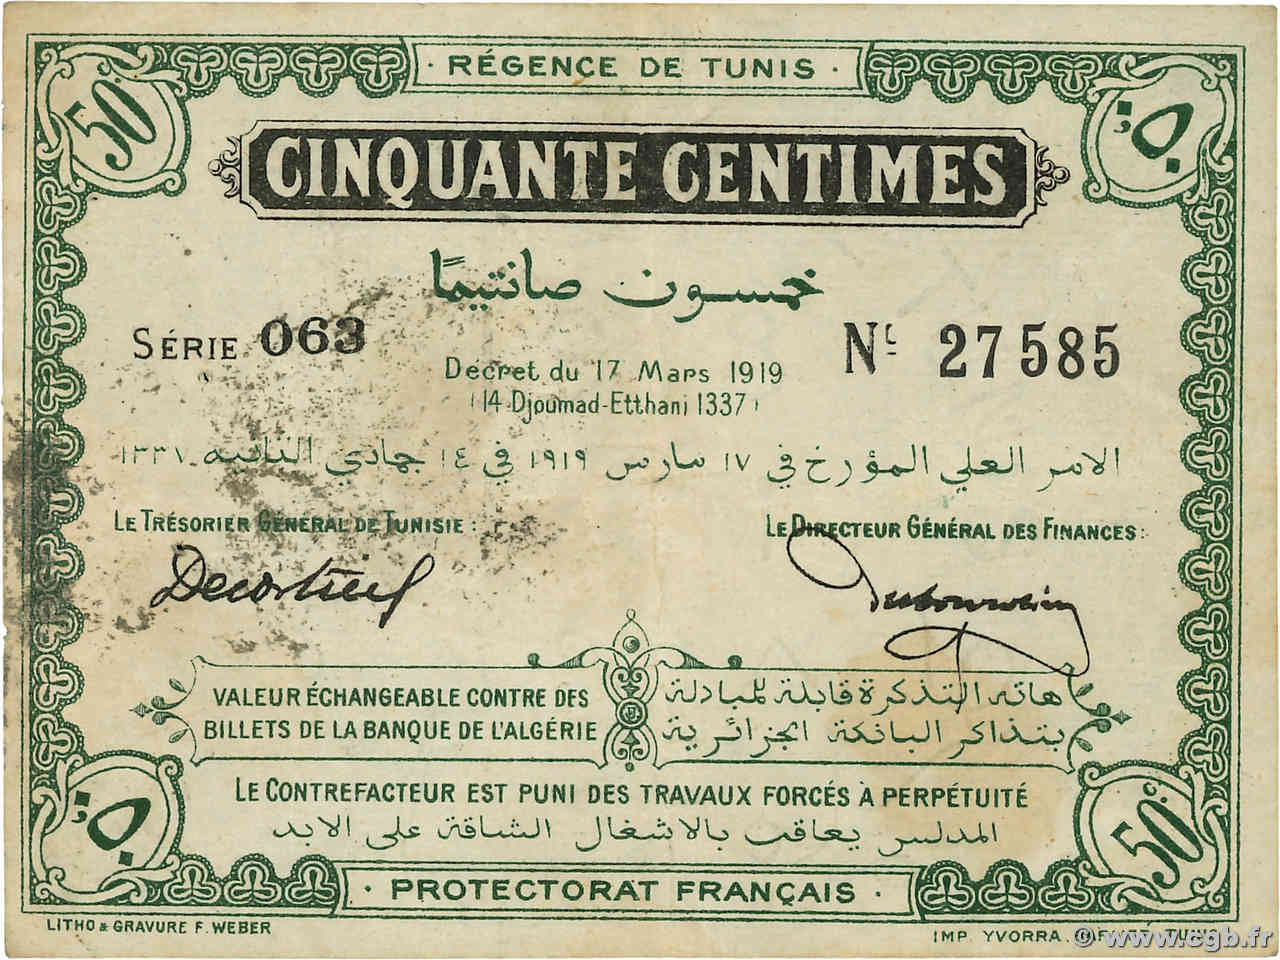 · RÉGENCE DE TUNIS ·
50c.
٥٠،
CINQUANTE CENTIMES
خمسون صانتيمًا
SÉRIE 063
No 27585
Décret du 17 Mars 1919
(14 Djoumad-Etthani 1337)
الامر العلي المؤرخ في ١٧ مارس ١٩١٩ في ١٤ جمادي الثانية ١٣٣٧
LE TRÉSORIER GÉNÉRAL DE TUNISIE :
LE DIRECTEUR GÉNÉRAL DES FINANCES :
VALEUR ÉCHANGEABLE CONTRE DES
BILLETS DE LA BANQUE DE L'ALGÉRIE
هاته التذكرة قابلة للمبادلة
بتذاكر البانكة الجزائرية
LE CONTREFACTEUR EST PUNI DES TRAVAUX FORCÉS À PERPÉTUITÉ
المدلس يعاقب بالاشغال الشاقة على الابد
٥٠،
50c.
· PROTECTORAT FRANÇAIS ·
LITHO & GRAVURE F. WEBER
IMP. YVORRA
© www.cgb.fr